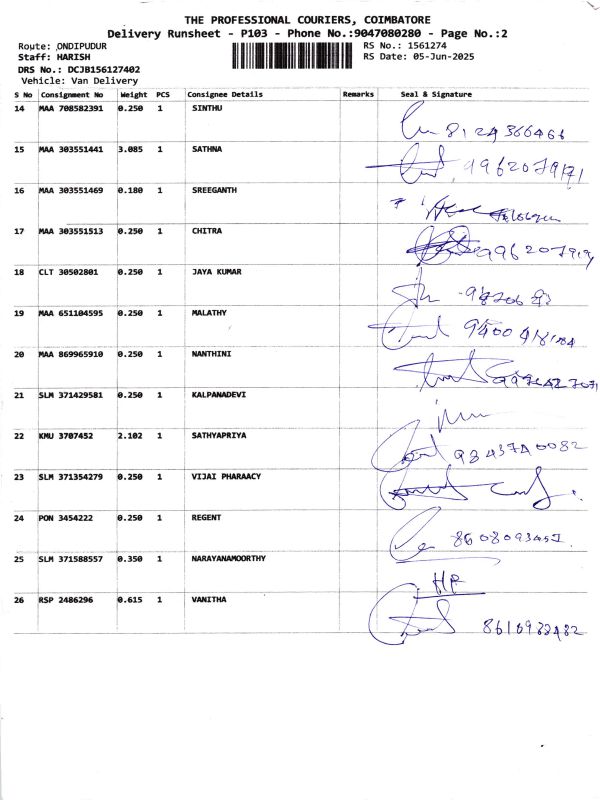 THE PROFESSIONAL COURIERS, COIMBATORE
Delivery Runsheet - P103 - Phone No.:9047080280 - Page No.:2
Route: ,ONDIPUDUR
RS No.: 1561274
Staff: HARISH
RS Date: 05-Jun-2025
DRS No.: DCJB156127402
Vehicle: Van Delivery
S No Consignment No Weight PCS Consignee Details Remarks Seal & Signature
14 MAA 708582391 0.250 1 SINTHU
15 MAA 303551441 3.085 1 SATHNA
16 MAA 303551469 0.180 1 SREEGANTH
17 MAA 303551513 0.250 1 CHITRA
18 CLT 30502801 0.250 1 JAYA KUMAR
19 MAA 651104595 0.250 1 MALATHY
20 MAA 869965910 0.250 1 NANTHINI
21 SLM 371429581 0.250 1 KALPANADEVI
22 KMU 3707452 2.102 1 SATHYAPRIYA 9843740082
23 SLM 371354279 0.250 1 VIJAI PHARAACY
24 PON 3454222 0.250 1 REGENT
25 SLM 371588557 0.350 1 NARAYANAMOORTHY
26 RSP 2486296 0.615 1 VANITHA